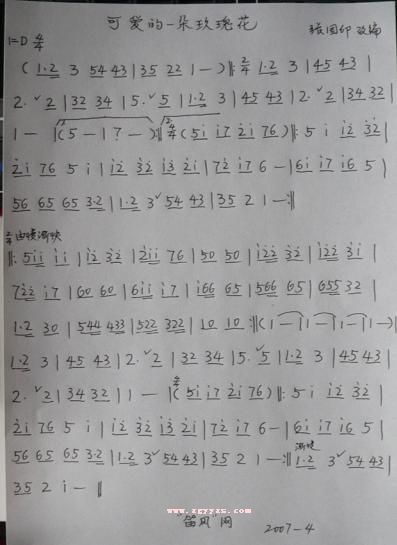 可爱的一朵玫瑰花
1=D 2/4 改编
( 1·2 3 54 43 | 35 22 1 — ) ‖: 2/4 1·2 3 | 45 43 |
2· ˇ 2 | 32 34 | 5· ˇ 5 | 1·2 3 | 45 43 | 2· ˇ 2 | 34 32 |
1 — | ( 5 — | 7 — ) :‖ ( 5i i7 2i 76 ) ‖: 5 i i2 32 |
2i 76 5 i | i2 32 i3 2i | 72 i7 6 — | 6i i7 i6 5 |
56 65 65 3·2 | 1·2 3 ˇ 54 43 | 35 2 1 — :‖
2/4 由慢渐快
‖: 5ii ii | i2 32 | 2ii 76 | 50 50 | i22 32 | i22 3i |
722 i7 | 60 60 | 6ii i7 | i66 65 | 566 65 | 655 32 |
1·2 30 | 544 433 | 522 322 | 10 10 :‖ ( 1 — | 1 — | 1 — | 1 — )
1·2 3 | 45 43 | 2· ˇ 2 | 32 34 | 5· ˇ 5 | 1·2 3 | 45 43 |
2· ˇ 2 | 34 32 | 1 — | ( 5i i7 2i 76 ) ‖: 5 i i2 32 |
2i 76 5 i | i2 32 i3 2i | 72 i7 6 — | 6i i7 i6 5 |
56 65 65 3·2 | 1·2 3 ˇ 54 43 | 35 2 1 — :‖ 渐慢 1·2 3 ˇ 54 43 |
35 2 i — ‖
www.zgyyzs.cn
"笛风"网 2007-4